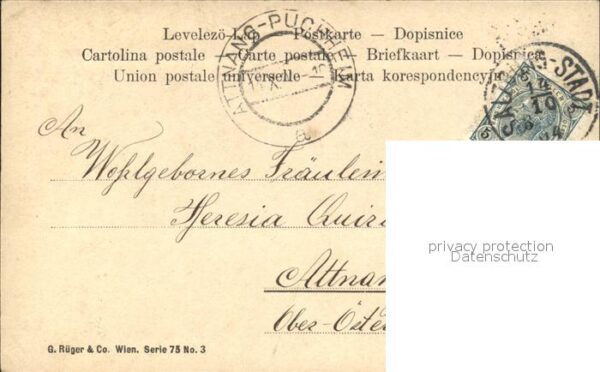 Levelező-Lap — Postkarte — Dopisnice
Cartolina postale — Carte postale — Briefkaart — Dopisnica
Union postale universelle — Karta korespondencyjna
ATTNANG-PUCHHEIM
a
-STADT
14
10
An
Wohlgebornes Fräulein
Theresia
Attnan
Ober-Öster
privacy protection
Datenschutz
G. Rüger & Co. Wien. Serie 75 No. 3